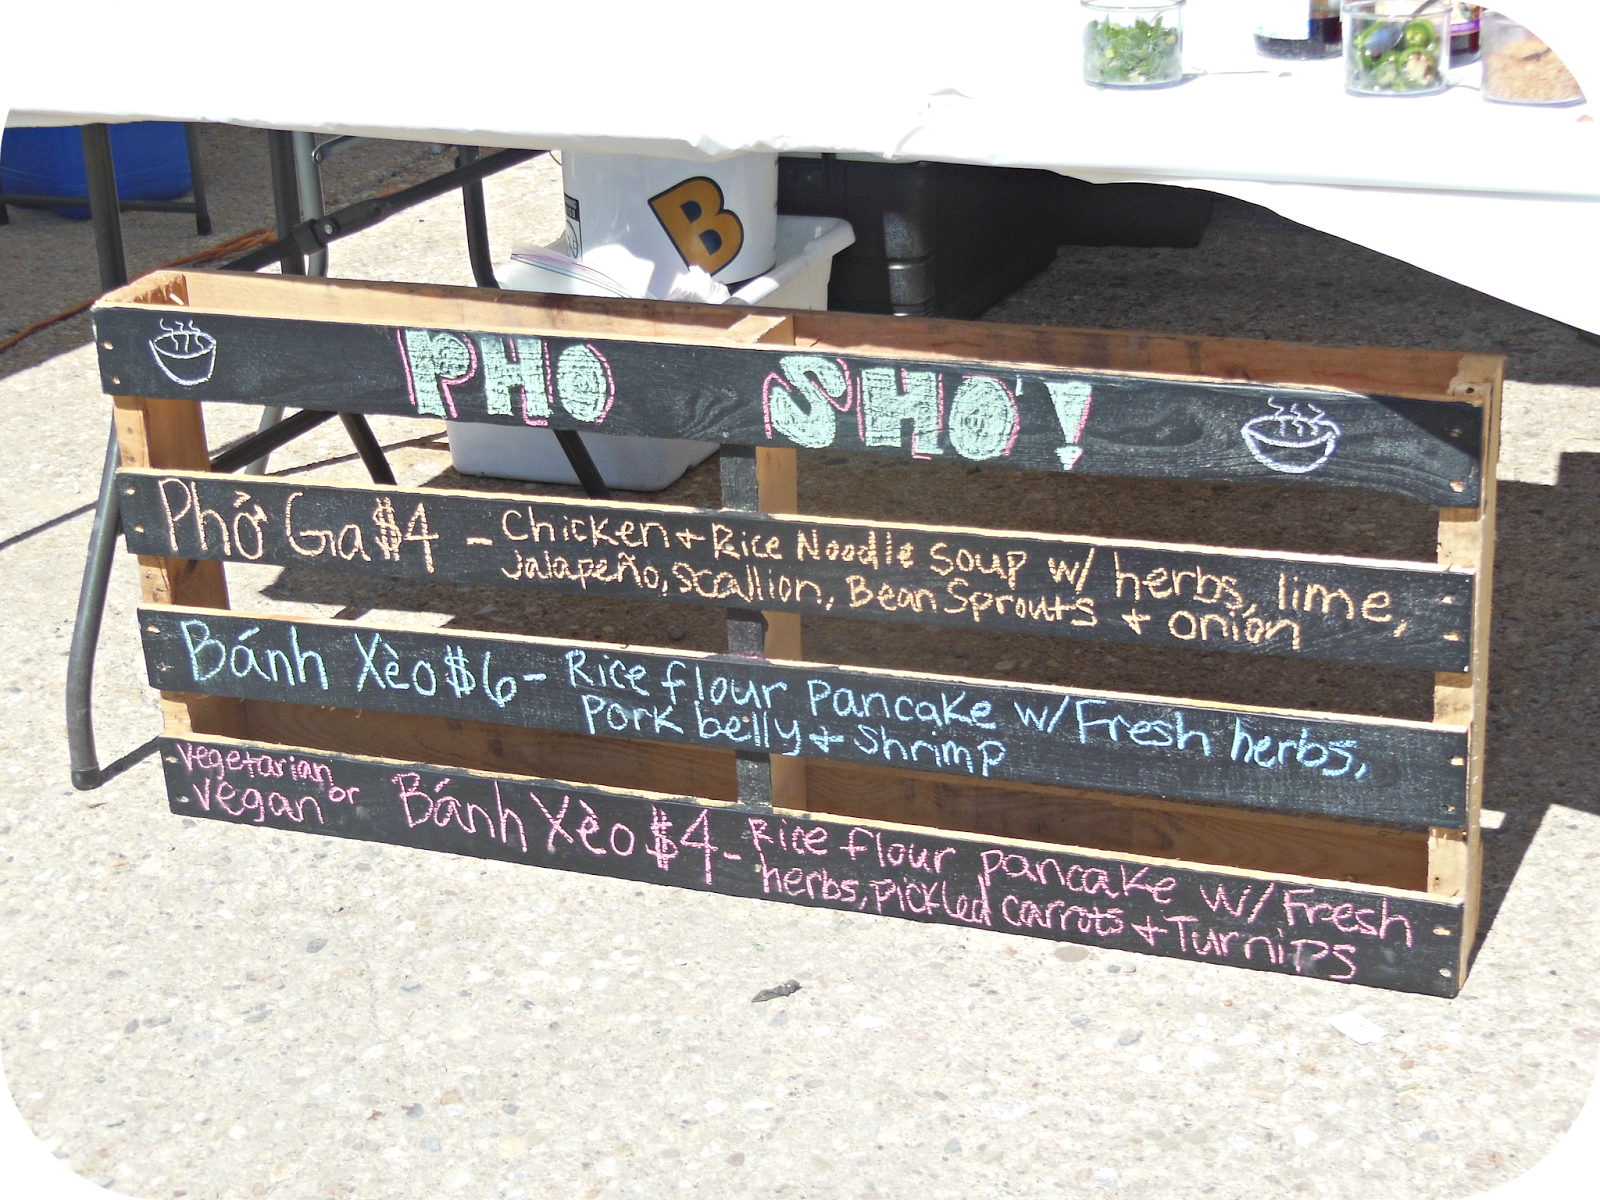 B
PHO SHO'!
Phở Ga $4 - Chicken + Rice Noodle soup w/ herbs, lime,
Jalapeño, scallion, Bean Sprouts + onion
Bánh Xèo $6 - Rice flour pancake w/ Fresh herbs,
pork belly + shrimp
vegetarian or
vegan
Bánh Xèo $4 - Rice flour pancake w/ Fresh
herbs, pickled carrots + Turnips